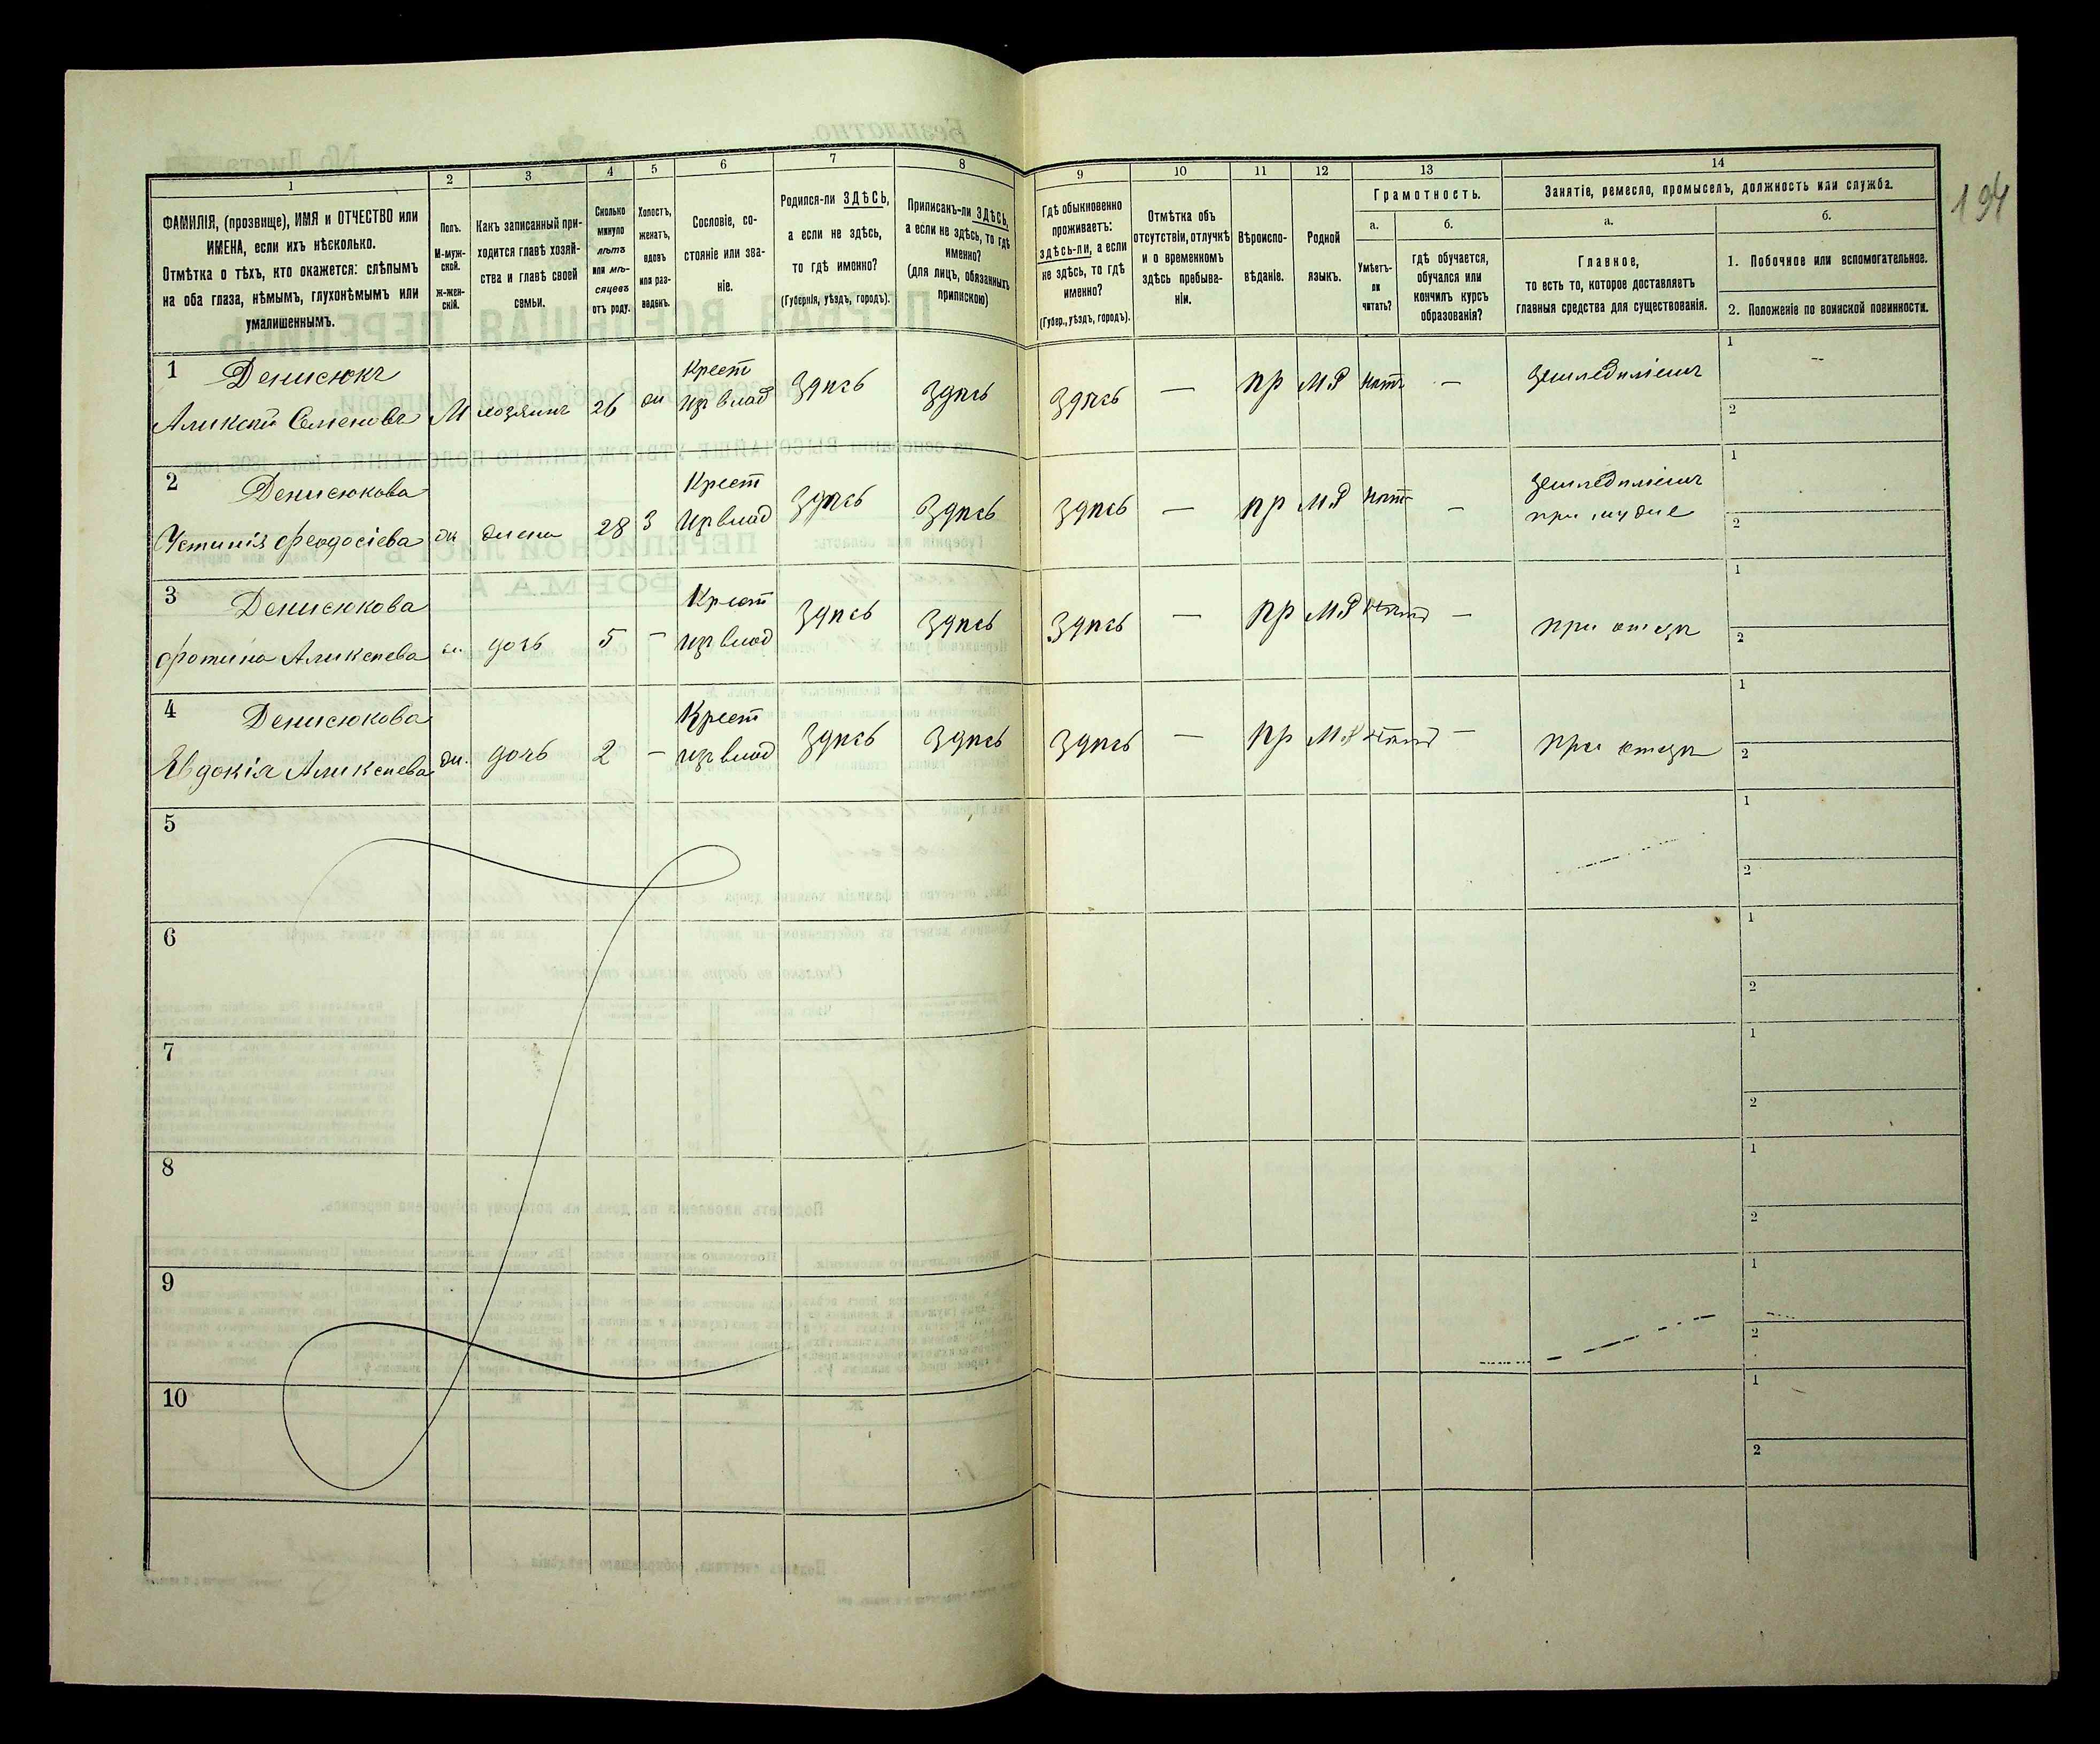 194
1
2
3
4
5
6
7
8
9
10
11
12
13
14
ФАМИЛІЯ, (прозвище), ИМЯ и ОТЧЕСТВО или
ИМЕНА, если ихъ нѣсколько.
Отмѣтка о тѣхъ, кто окажется: слѣпымъ
на оба глаза, нѣмымъ, глухонѣмымъ или
умалишеннымъ.
Полъ.
М-муж-
ской.
Ж-жен-
скій.
Какъ записанный при-
ходится главѣ хозяй-
ства и главѣ своей
семьи.
Сколько
минуло
лѣтъ
или мѣ-
сяцевъ
отъ роду.
Холостъ,
женатъ,
вдовъ
или раз-
веденъ.
Сословіе, со-
стояніе или зва-
ніе.
Родился-ли ЗДѢСЬ,
а если не здѣсь,
то гдѣ именно?
(Губернія, уѣздъ, городъ).
Приписанъ-ли ЗДѢСЬ,
а если не здѣсь, то гдѣ
именно?
(для лицъ, обязанныхъ
припискою)
Гдѣ обыкновенно
проживаетъ:
здѣсь-ли, а если
не здѣсь, то гдѣ
именно?
(Губер., уѣздъ, городъ).
Отмѣтка объ
отсутствіи, отлучкѣ
и о временномъ
здѣсь пребыва-
ніи.
Вѣроиспо-
вѣданіе.
Родной
языкъ.
Грамотность.
а.
Умѣетъ-
ли
читать?
б.
гдѣ обучается,
обучался или
кончилъ курсъ
образованія?
Занятіе, ремесло, промыселъ, должность или служба.
а.
Главное,
то есть то, которое доставляетъ
главныя средства для существованія.
б.
1. Побочное или вспомогательное.
2. Положеніе по воинской повинности.
1 Денисюкъ
Алексѣй Семеновъ М хозяинъ 26 ж Крест
изъ влад здѣсь здѣсь здѣсь — пр М.Р нѣтъ — земледѣліемъ
1 —
2
2 Денисюкова
Устинія Феодосіева ж жена 28 З Крест
изъ влад здѣсь здѣсь здѣсь — пр М.Р нѣтъ — земледѣліемъ
при мужѣ
1
2
3 Денисюкова
Фотина Алексѣева ж. дочь 5 — Крест
изъ влад здѣсь здѣсь здѣсь — пр М.Р нѣтъ — при отцѣ
1
2
4 Денисюкова
Явдокія Алексѣева ж. дочь 2 — Крест
изъ влад здѣсь здѣсь здѣсь — пр М.Р нѣтъ — при отцѣ
1
2
5
1
2
6
1
2
7
1
2
8
1
2
9
1
2
10
1
2